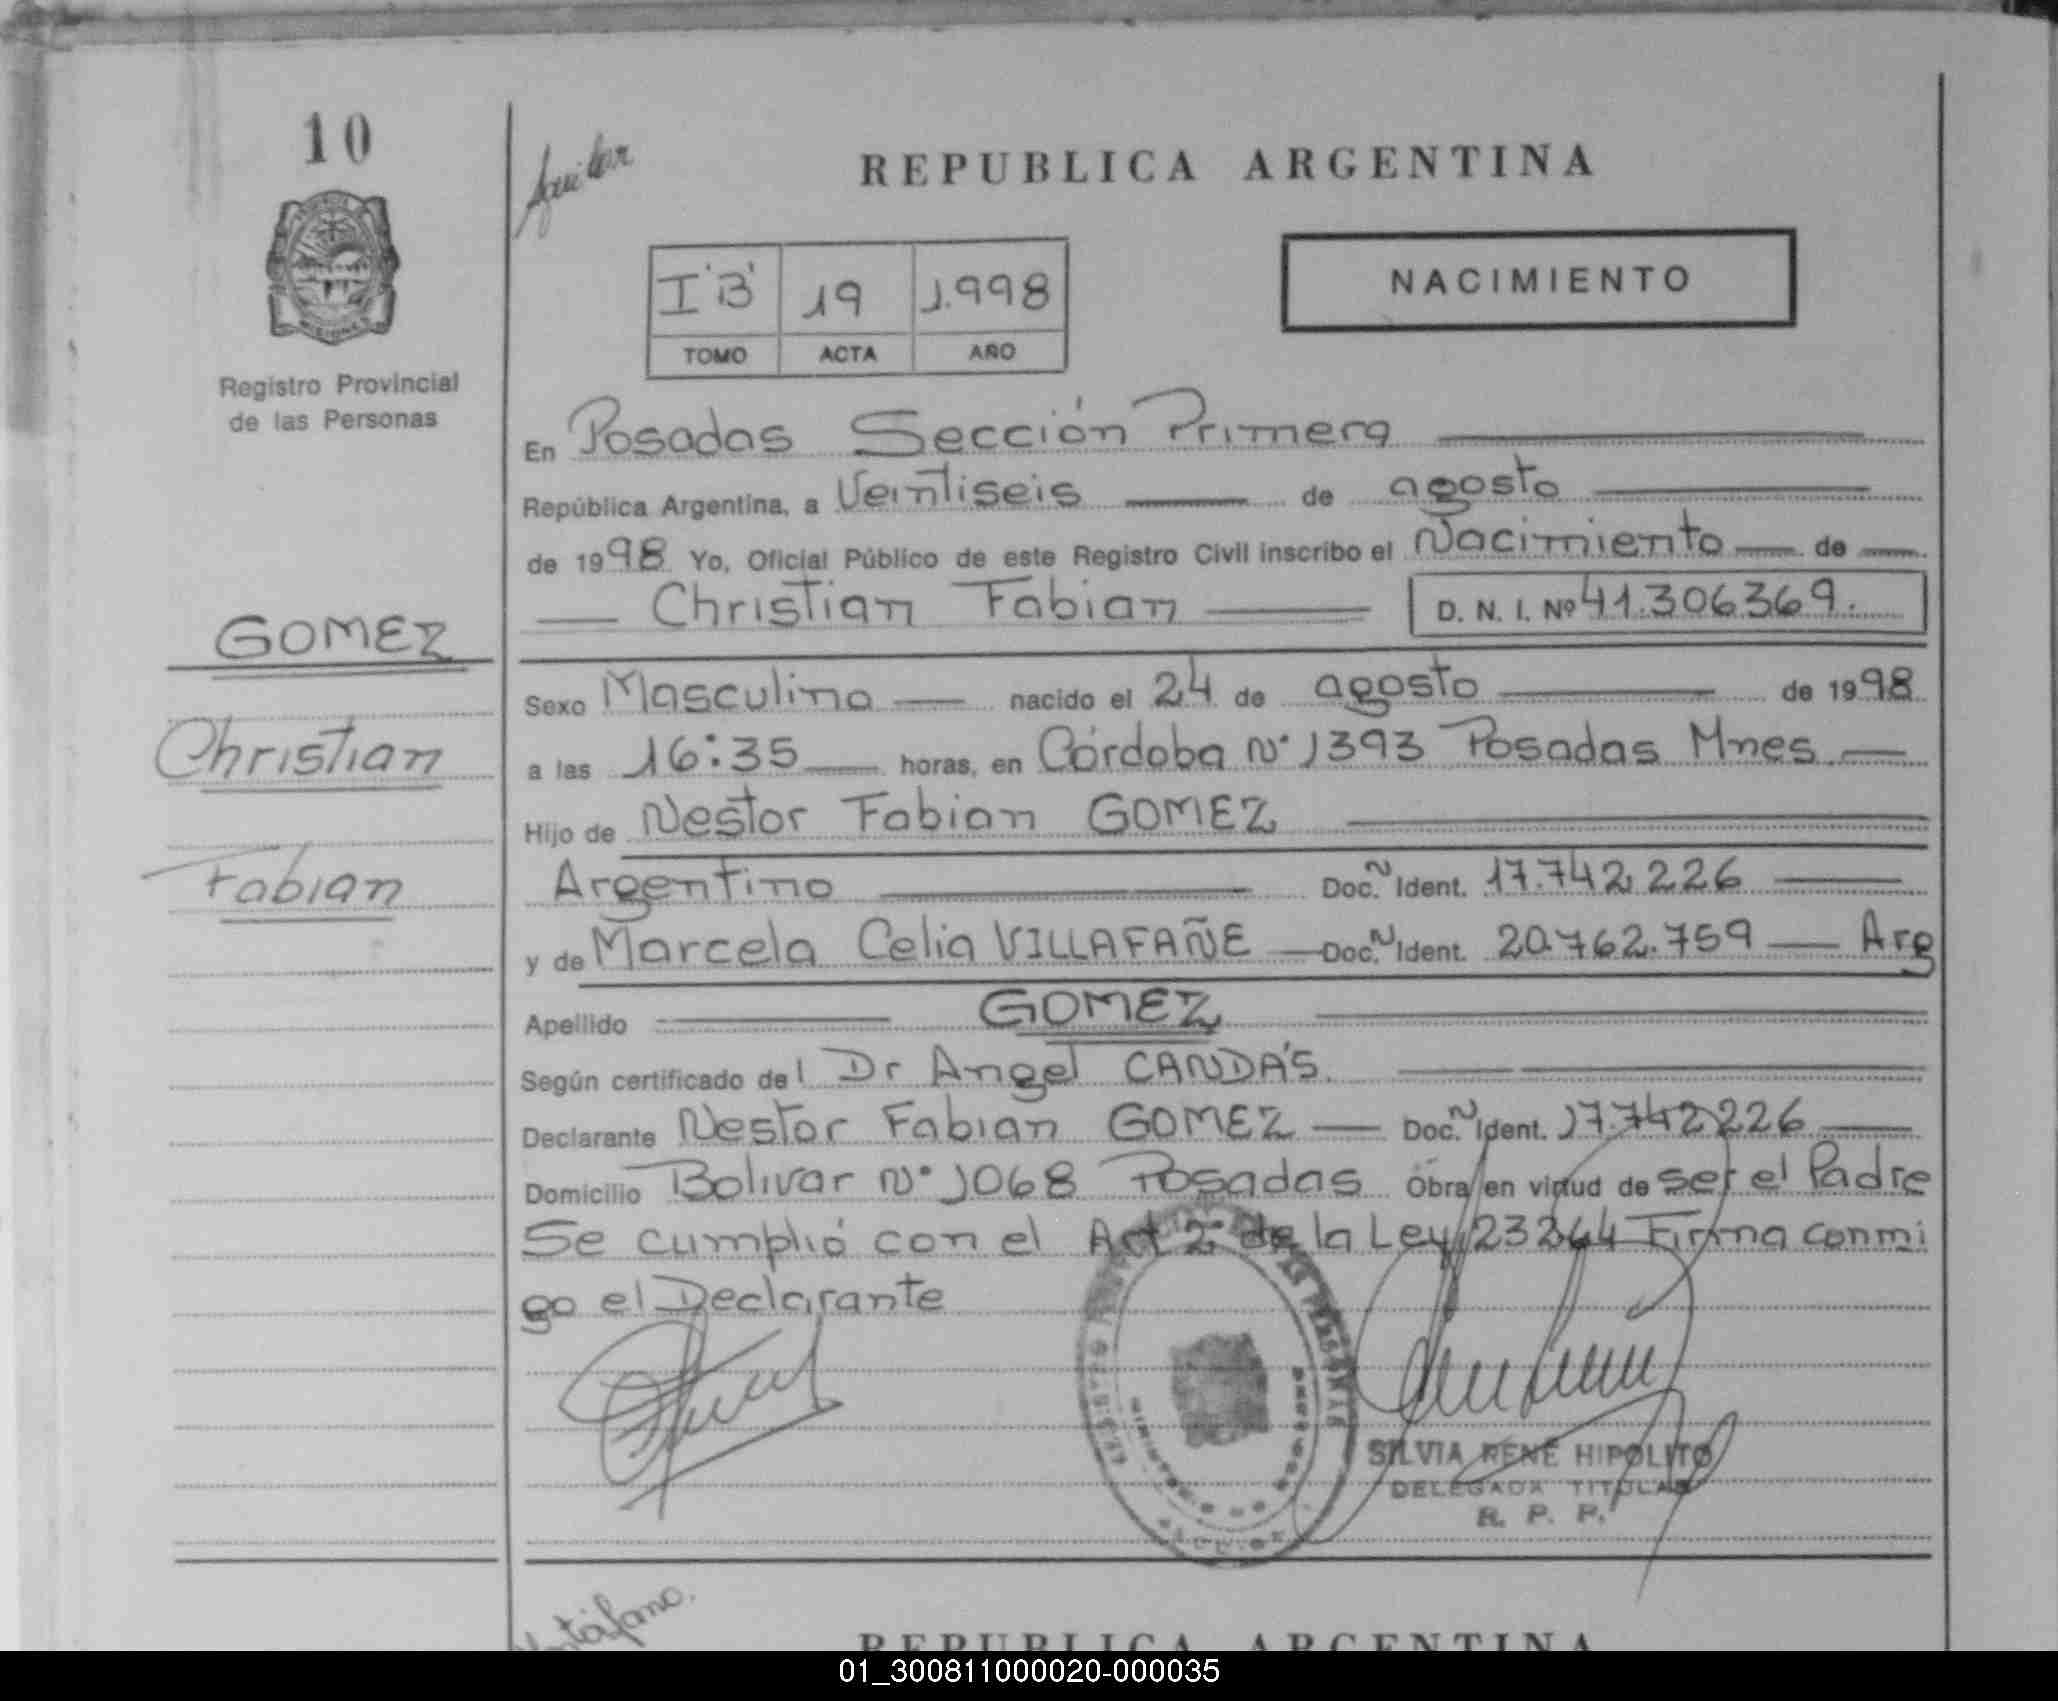 10
Aguilar
REPUBLICA ARGENTINA
NACIMIENTO
I 'B' 19 1.998
TOMO ACTA AÑO
Registro Provincial
de las Personas
En Posadas Sección Primera
República Argentina, a Veintiseis de agosto
de 1998 Yo, Oficial Público de este Registro Civil inscribo el Nacimiento de
Christian Fabian D. N. I. Nº 41.306369.
GOMEZ
Christian
Fabian
Sexo Masculino nacido el 24 de agosto de 1998
a las 16:35 horas, en Córdoba Nº 1393 Posadas Mnes.
Hijo de Nestor Fabian GOMEZ
Argentino Doc. N Ident. 17.742.226
y de Marcela Celia VILLAFAÑE Doc. N Ident. 20.762.759 Arg
Apellido GOMEZ
Según certificado del Dr Angel CANDÁS.
Declarante Nestor Fabian GOMEZ Doc. N Ident. 17.742226
Domicilio Bolivar Nº 1068 Posadas Obra en virtud de ser el Padre
Se cumplió con el Art 2º de la Ley 23264 Firma conmi
go el Declarante
SILVIA RENÉ HIPOLITO
DELEGADA TITULAR
R. P. P.
REPUBLICA ARGENTINA
01_300811000020-000035